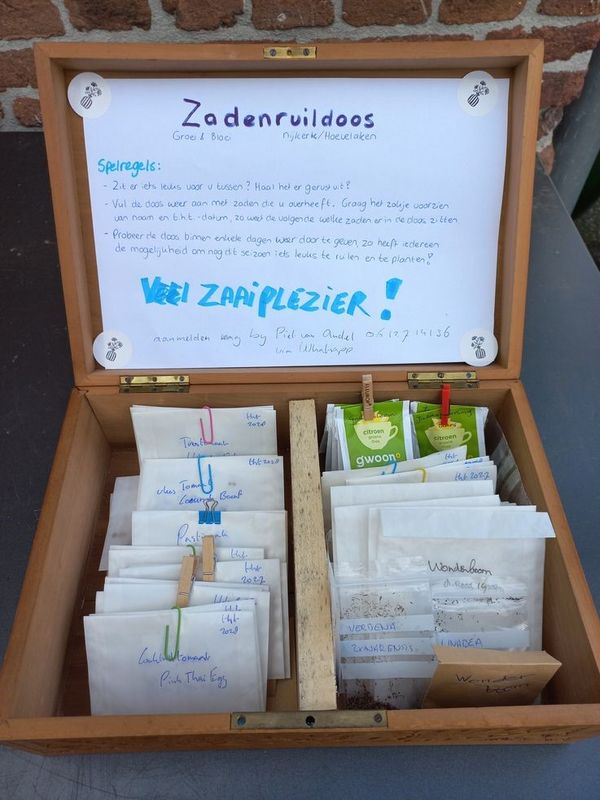 Zadenruildoos
Groei & Bloei Nijkerk/Hoevelaken
Spelregels:
- Zit er iets leuks voor u tussen? Haal het er gerust uit!
- Vul de doos weer aan met zaden die u overheeft. Graag het zakje voorzien
van naam en t.h.t.-datum, zo weet de volgende welke zaden er in de doos zitten.
- Probeer de doos binnen enkele dagen weer door te geven, zo heeft iedereen
de mogelijkheid om nog dit seizoen iets leuks te ruilen en te planten!
Veel ZAAIPLEZIER!
aanmelden by Piet van Andel
via Whatsapp
tht
2028
tht 2028
Vlees Tomaat
Coeur de Boeuf
Pastinaak
tht
2027
tht
2028
Cocktailtomaat
Pink Thai Egg
citroen
groene
thee
gwoon
citroen
tht
2027
Wonderboom
VERBENA
BONARENSIS
LINARIA
Wonder
boom